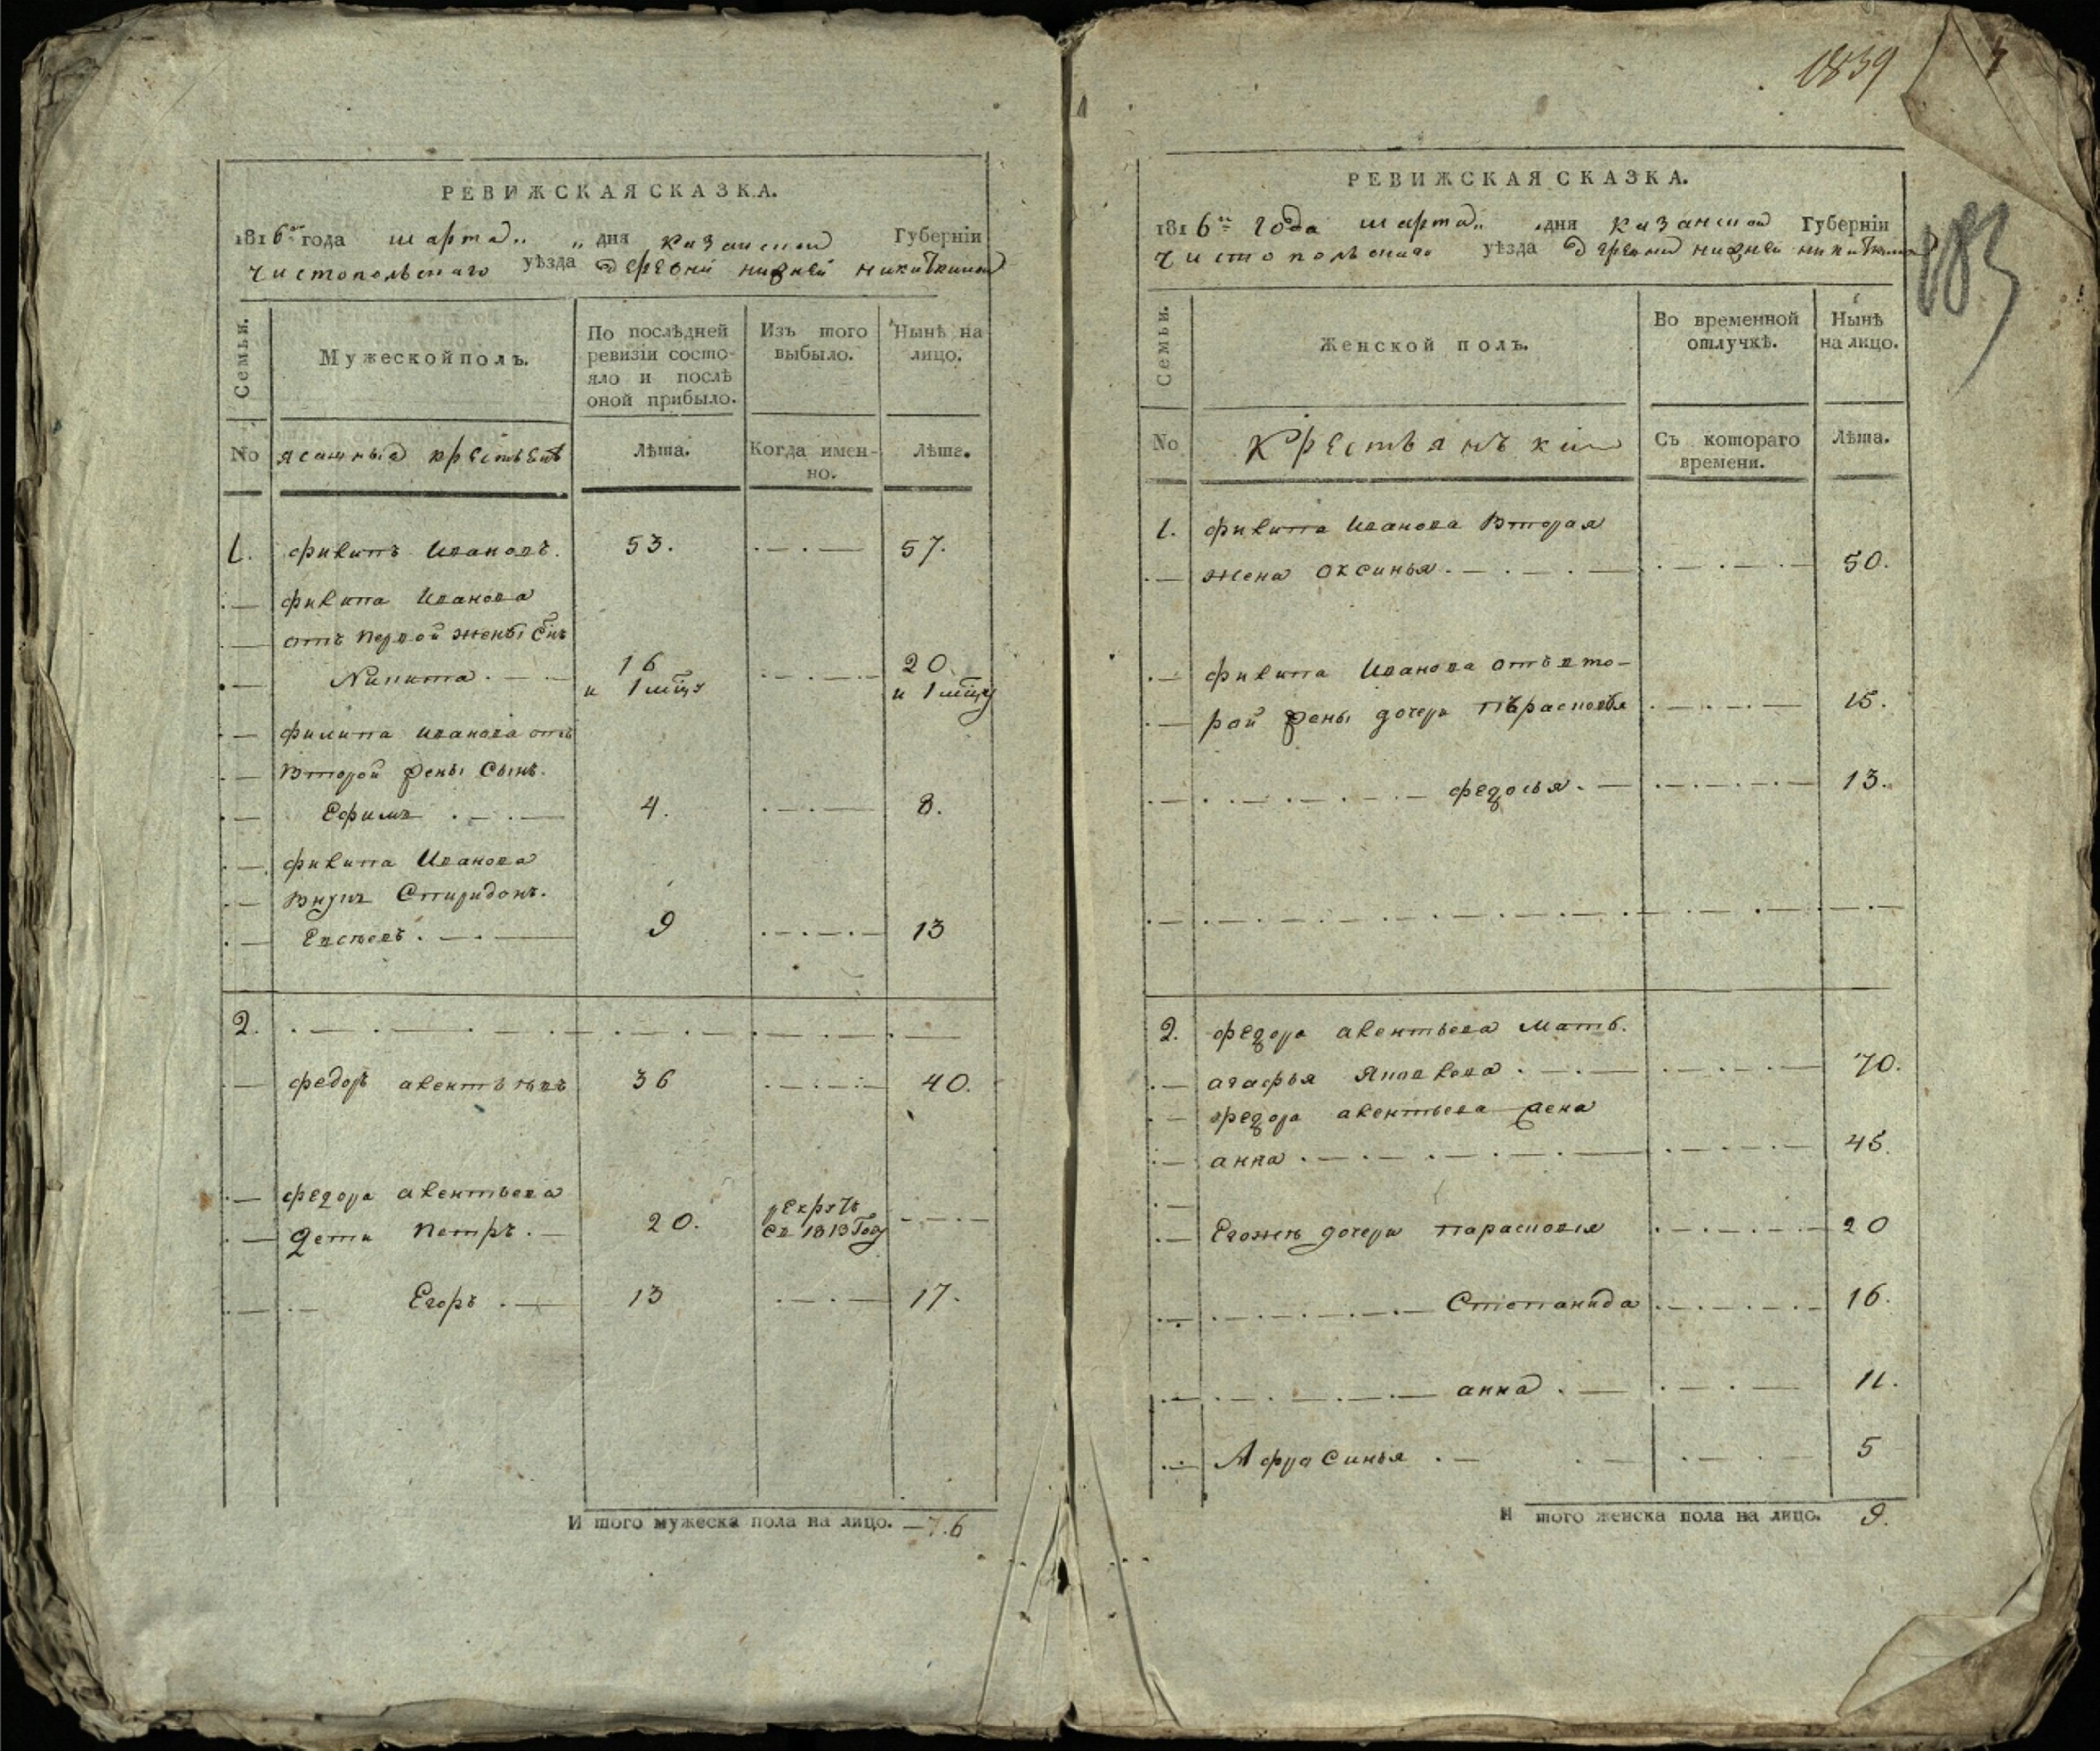 РЕВИЖСКАЯ СКАЗКА.
1816го года марта „ „ дня казанской Губернїи
чистопольскаго уѣзда деревни нижней никиткиной
Семьи.
Мужеской полъ.
По послѣдней ревизїи состо-
яло и послѣ
оной прибыло.
Изъ того выбыло.
Нынѣ на лицо.
No
ясашныя крестьянѣ
Лѣта.
Когда имен-
но.
Лѣта.
1. филипъ Ивановъ. 53. 57.
филипа Иванова
отъ первой жены снъ
Никита 16 и 1 мцъ 20 и 1 мцъ
филипа иванова отъ
второй жены сынъ
Ефимъ 4. 8.
филипа Иванова
внукъ Спиридонъ.
Евсѣевъ. 9 13
2.
федоръ авентьевъ 36 40.
федора авентьева
дети петръ. 20. рекрутъ
съ 1813 году
Егоръ 13 17.
И того мужеска пола на лицо. 6
1839
183
РЕВИЖСКАЯ СКАЗКА.
1816го года марта „ дня казанской Губернїи
чистопольскаго уѣзда деревни нижней никиткиной
Семьи.
Женской полъ.
Во временной отлучкѣ.
Нынѣ на лицо.
No
Крестьянъки
Съ котораго времени.
Лѣта.
1. филипа Иванова вторая
жена оксинья. 50.
филипа Иванова отъ вто-
рой жены дочери пърасковья 15.
федосья. 13.
2. федора авентьева мать.
агафья яковлева. 70.
федора авентьева жена
анна. 45.
Егожъ дочери парасковья 20
Степанида 16.
анна. 11.
Афрасинья. 5
И того женска пола на лицо. 9.